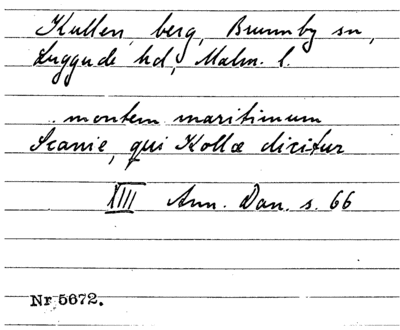 Kullen, berg, Brunnby sn,
Luggude hd, Malm. l.
.. montem maritimum
Scanie, qui Kollæ dicitur
XIII Ann. Dan. s. 66
Nr 5672.